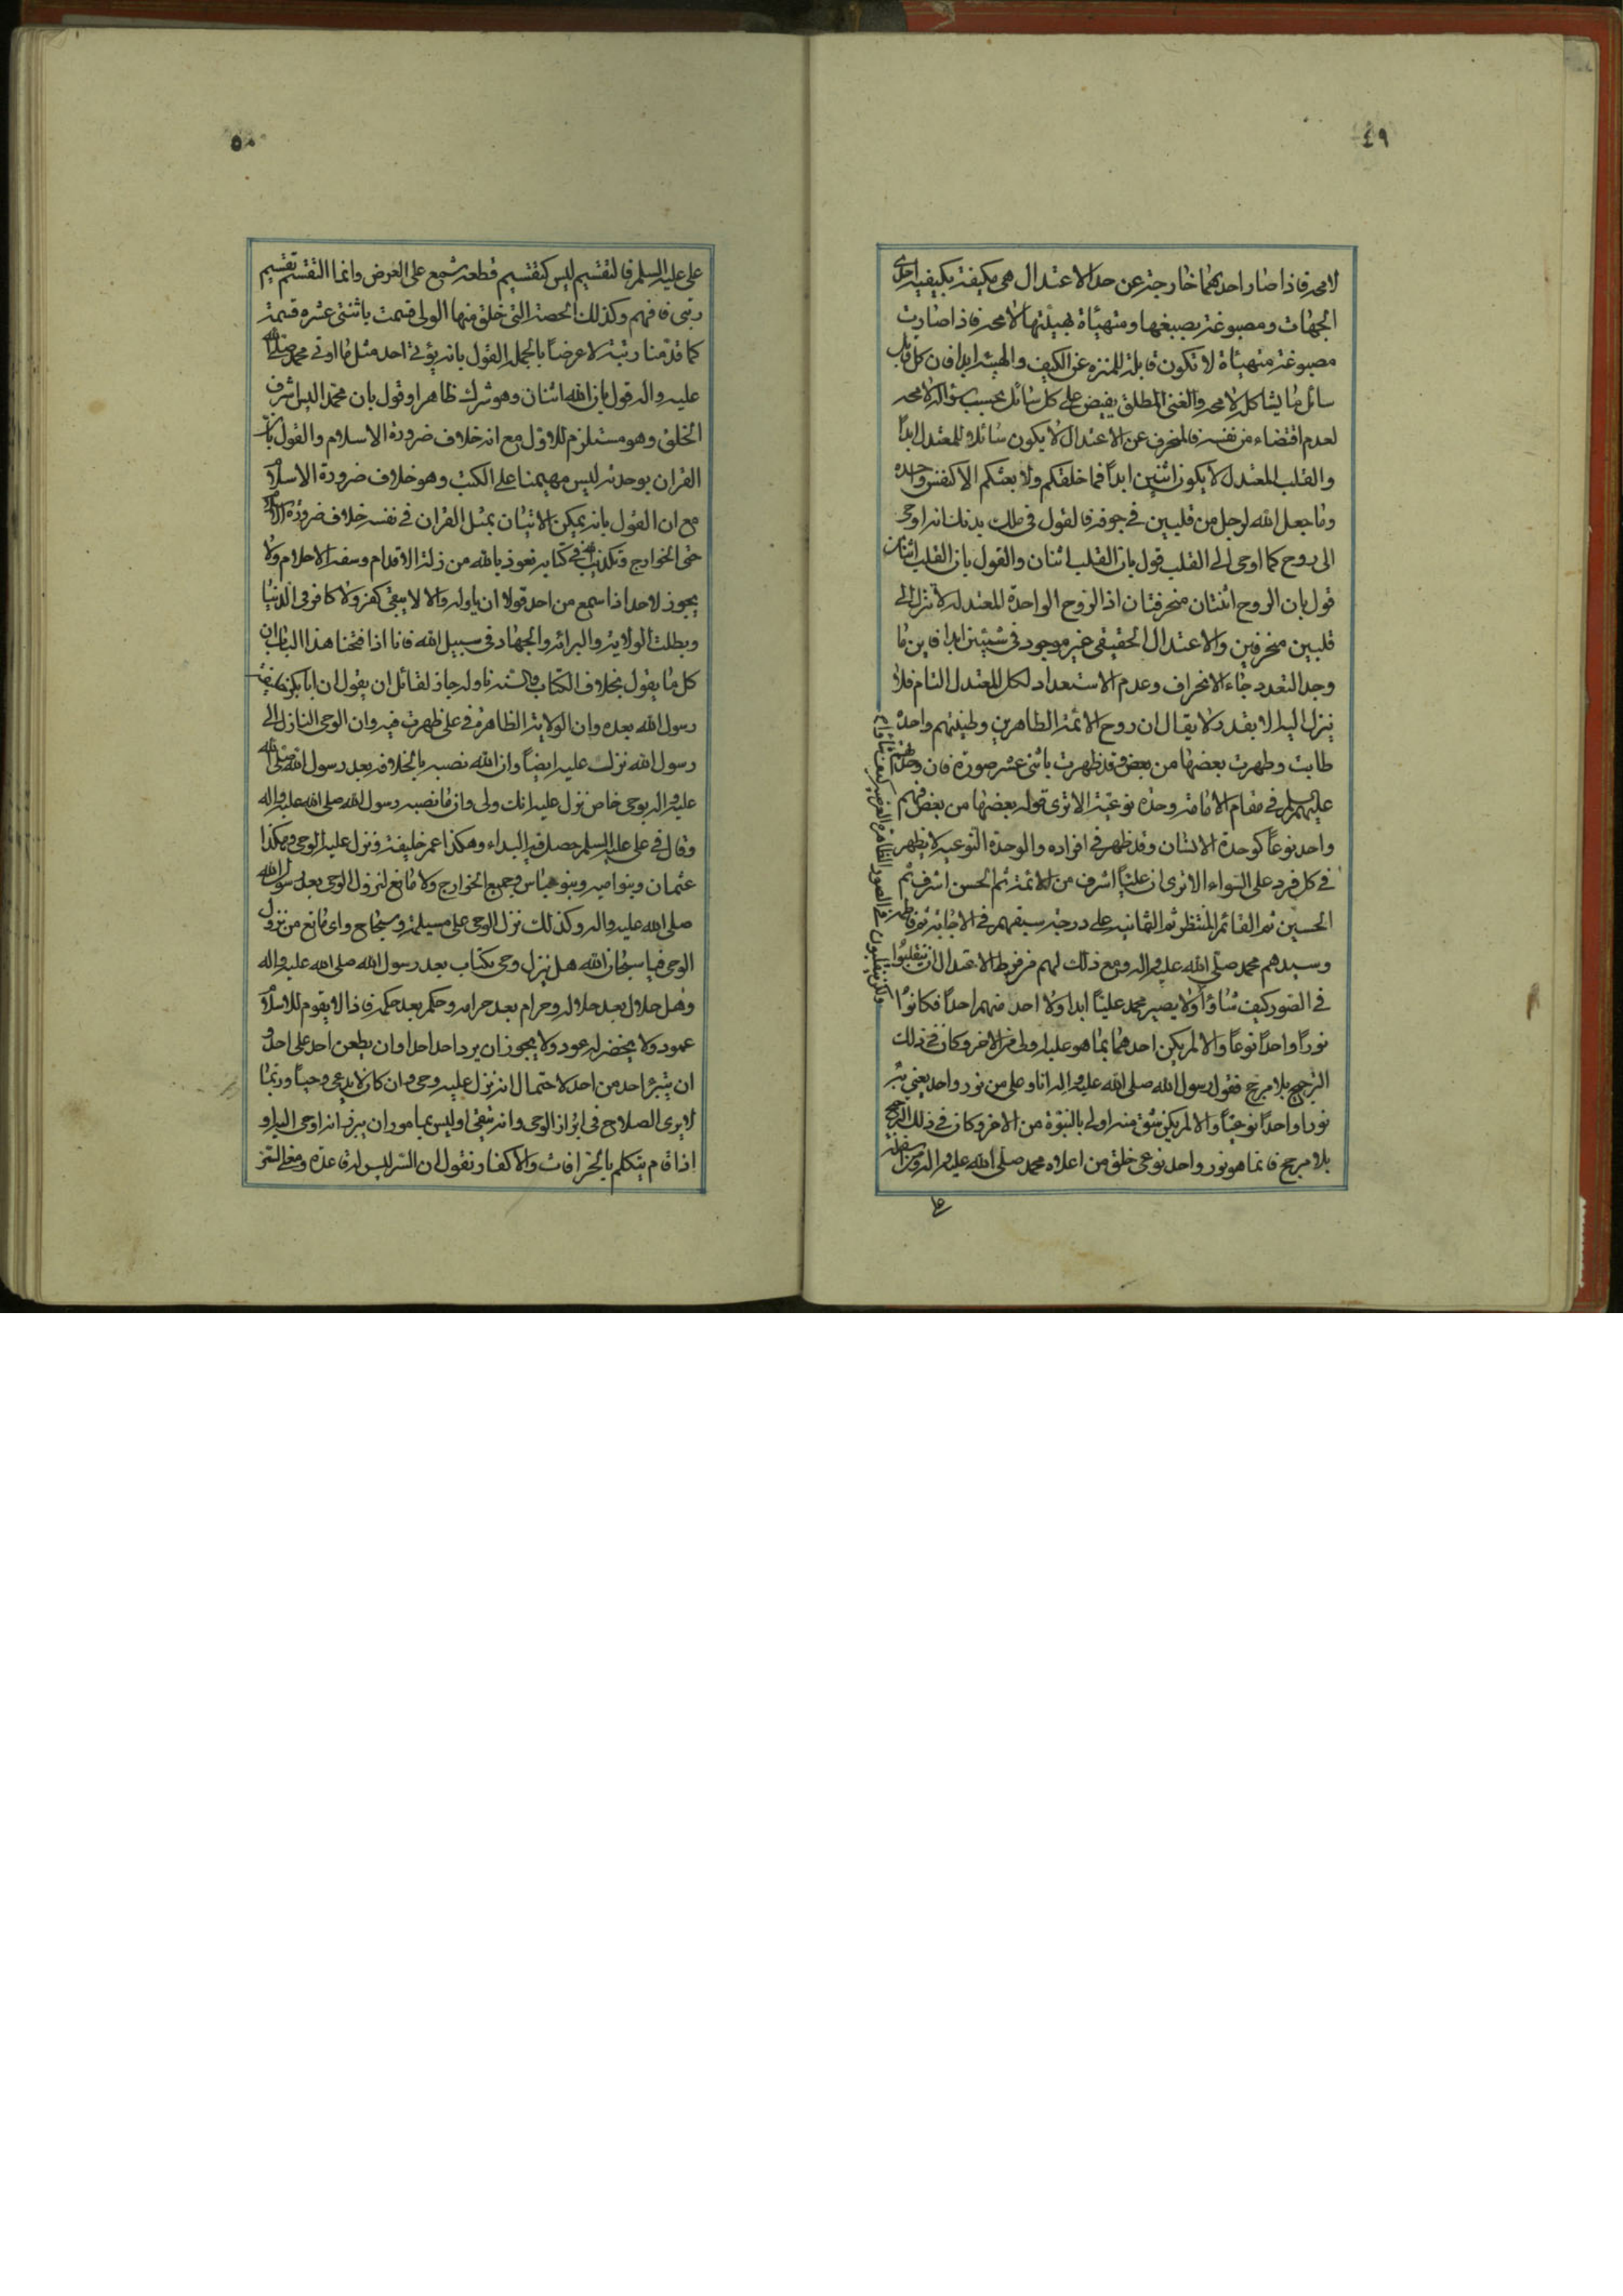 ٤٩
لا محة فاذا صار احدهما خارجة عن حد الاعتدال هى مكيفة بكيفية احدى
الجهات ومصبوغة بصبغها ومتهيأة بهيئتها لا محة فاذا صارت
مصبوغة متهيأة لا تكون قابلة للمنزه عن الكيف والهيئة ابدا فان كل قابل
سائل ما يشاكله لا محة والغنى المطلق يفيض على كل سائل بحسب سؤاله لا محة
لعدم اقتضاء من نفسه فالمنحرف عن الاعتدال لا يكون سائلا للمعتدل ابداً
والقلب المعتدل لا يكون اثنين ابداً فما خلقكم ولا بعثكم الا كنفس واحدة
وما جعل الله لرجل من قلبين فى جوفه فالقول فى ملك بدنك انه اوحى
الى روح كما اوحى الى القلب قول بان القلب اثنان والقول بان القلب اثنان
قول بان الروح اثنتان منحرفتان اذ الروح الواحدة المعتدلة لا تنزل الى
قلبين منحرفين والاعتدال الحقيقى غير موجود فى شيئين ابدا فاين ما
وجد التعدد جاء الانحراف وعدم الاستعداد لكل المعتدل التام فلا
ينزل اليه الا بقدره لا يقال ان روح الائمة الطاهرين وطينتهم واحدة
طابت وطهرت بعضها من بعض وقد ظهرت باثنى عشر صورة فان وحدتهم
عليهم السلم فى مقام الامامة وحدة نوعية الا ترى قوله بعضها من بعض فهم
واحد نوعاً كوحدة الانسان وقد ظهر فى افراده والوحدة النوعية لا يظهر
فى كل فرد على السواء الا ترى ان علياً اشرف من الائمة ثم الحسن اشرف ثم
الحسين ثم القائم المنتظر ثم الثمانية على درجة سبقهم فى الاجابة ثم فاطمة
وسيدهم محمد صلى الله عليه واله ومع ذلك لهم من فرط الاعتدال ان يتقلبوا
فى الصور كيف شاؤا ولا يصير محمد علياً ابدا ولا احد منهم احداً فكانوا
نوراً واحداً نوعاً والا لم يكن احدهما بما هو عليه اولى من الاخر وكان فى ذلك
الترجيح بلا مرجح فقول رسول الله صلى الله عليه واله انا وعلى من نور واحد يعنى به
نورا واحداً نوعياً والا لم يكن شق منه اولى بالنبوة من الاخر وكان فى ذلك الترجيح
بلا مرجح فانما هو نور واحد نوعى خلق من اعلاه محمد صلى الله عليه واله ومن اسفله
على
٥٠
على عليه السلم فالتقسيم ليس كتقسيم قطعة شمع على العرض وانما التقسيم تقسيم
رتبى فافهم وكذلك الحصة التى خلق منها الولى قسمت باثنتى عشرة قسمة
كما قدمنا رتبة لا عرضاً بالجملة القول بانه يؤتى احد مثل ما اوتى محمد صلى الله
عليه واله قول بان الله اثنان وهو شرك ظاهر او قول بان محمدا ليس اشرف
الخلق وهو مستلزم للاول مع انه خلاف ضرورة الاسلام والقول بان
القران بوحدته ليس مهيمنا على الكتب وهو خلاف ضرورة الاسلام
مع ان القول بانه يمكن الاتيان بمثل القران فى نفسه خلاف ضرورة الاسلام
حتى الخوارج وتكذيب الله فى كتابه نعوذ بالله من زلة الاقدام وسفه الاحلام ولا
يجوز لاحد اذا سمع من احد قولا ان ياوله والا لا يبقى كفر ولا كافر فى الدنيا
وبطلت الولاية والبرائة والجهاد فى سبيل الله فانا اذا فتحنا هذا الباب ان
كل ما يقول بخلاف الكتاب والسنة ناوله جاز لقائل ان يقول ان ابابكر خليفة
رسول الله بعده وان الولاية الظاهرة فى على ظهرت فيه وان الوحى النازل الى
رسول الله نزلت عليه ايضاً وان الله نصبه بالخلافة بعد رسول الله صلى الله
عليه واله بوحى خاص نزل عليه انك ولى وان ما نصبه رسول الله صلى الله عليه واله
وقال فى على عليه السلم حصل فيه البداء وهكذا عمر خليفة ونزل عليه الوحى وهكذا
عثمان وبنو امية وبنو عباس وجميع الخوارج ولا مانع لنزول الوحى بعد رسول الله
صلى الله عليه واله وكذلك نزل الوحى على مسيلمة وسجاح واى مانع من نزول
الوحى فيا سبحان الله هل ينزل وحى بكتاب بعد رسول الله صلى الله عليه واله
وهل حلال بعد حلاله وحرام بعد حرامه وحكم بعد حكمه فاذا لا يقوم للاسلام
عمود ولا يخضر له عود ولا يجوز ان يرد احد احدا وان يطعن احد على احد و
ان يتبرء احد من احد لاحتمال انه نزل عليه وحى وان كان لا يدعى وحياً وربما
لا يرى الصلاح فى ابراز الوحى وانه يتقى او ليس بمامور ان يبرز انه اوحى اليه او
اذا قام يتكلم بالخرافات والاكفار ونقول ان السر ليس له قاعدة ومع السر